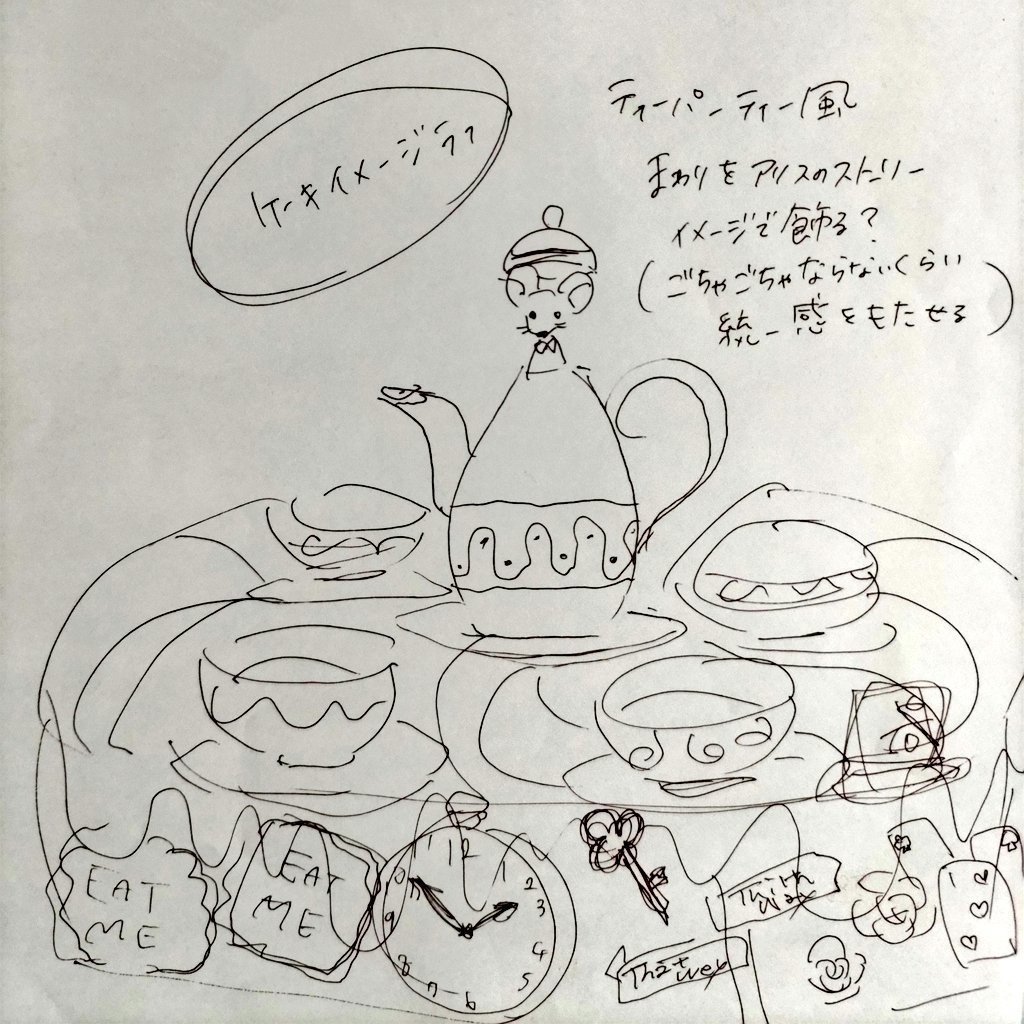 ケーキイメージラフ
ティーパーティー風
まわりをアリスのストーリー
イメージで飾る?
(ごちゃごちゃならないくらい
統一感をもたせる)
EAT
ME
EAT
ME
12
1
2
3
4
5
6
7
8
9
10
11
That Way